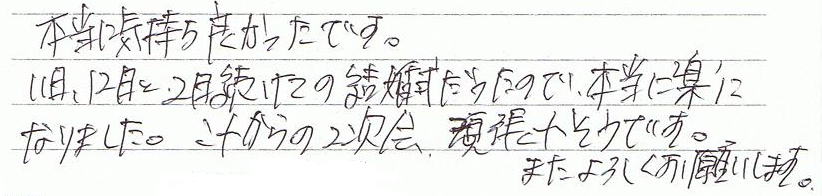 本当に気持ち良かったです。
11月、12月と2月続けての結婚式だったので、本当に楽に
なりました。これからの2次会、頑張れそうです。
またよろしくお願いします。